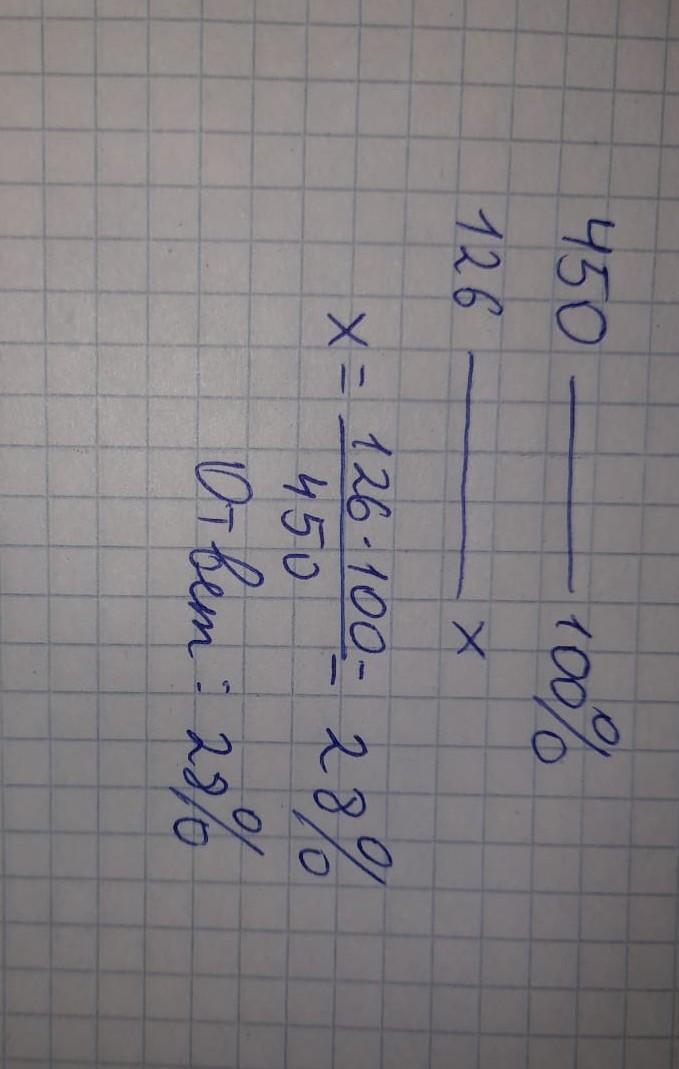 450 — 100%
126 — x
x = 126·100 =
450
= 28%
Ответ: 28%